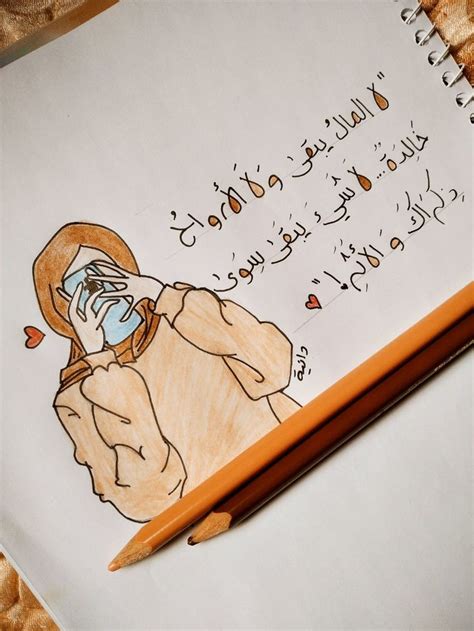 "لا المالُ يبقىٰ وَلَا الأَرواحُ
خَالِدَةً... لَا شَيْءَ يَبَقىٰ سِوَىٰ
ذِكرَاكَ وَ الأَثَرُ.!"
دانية